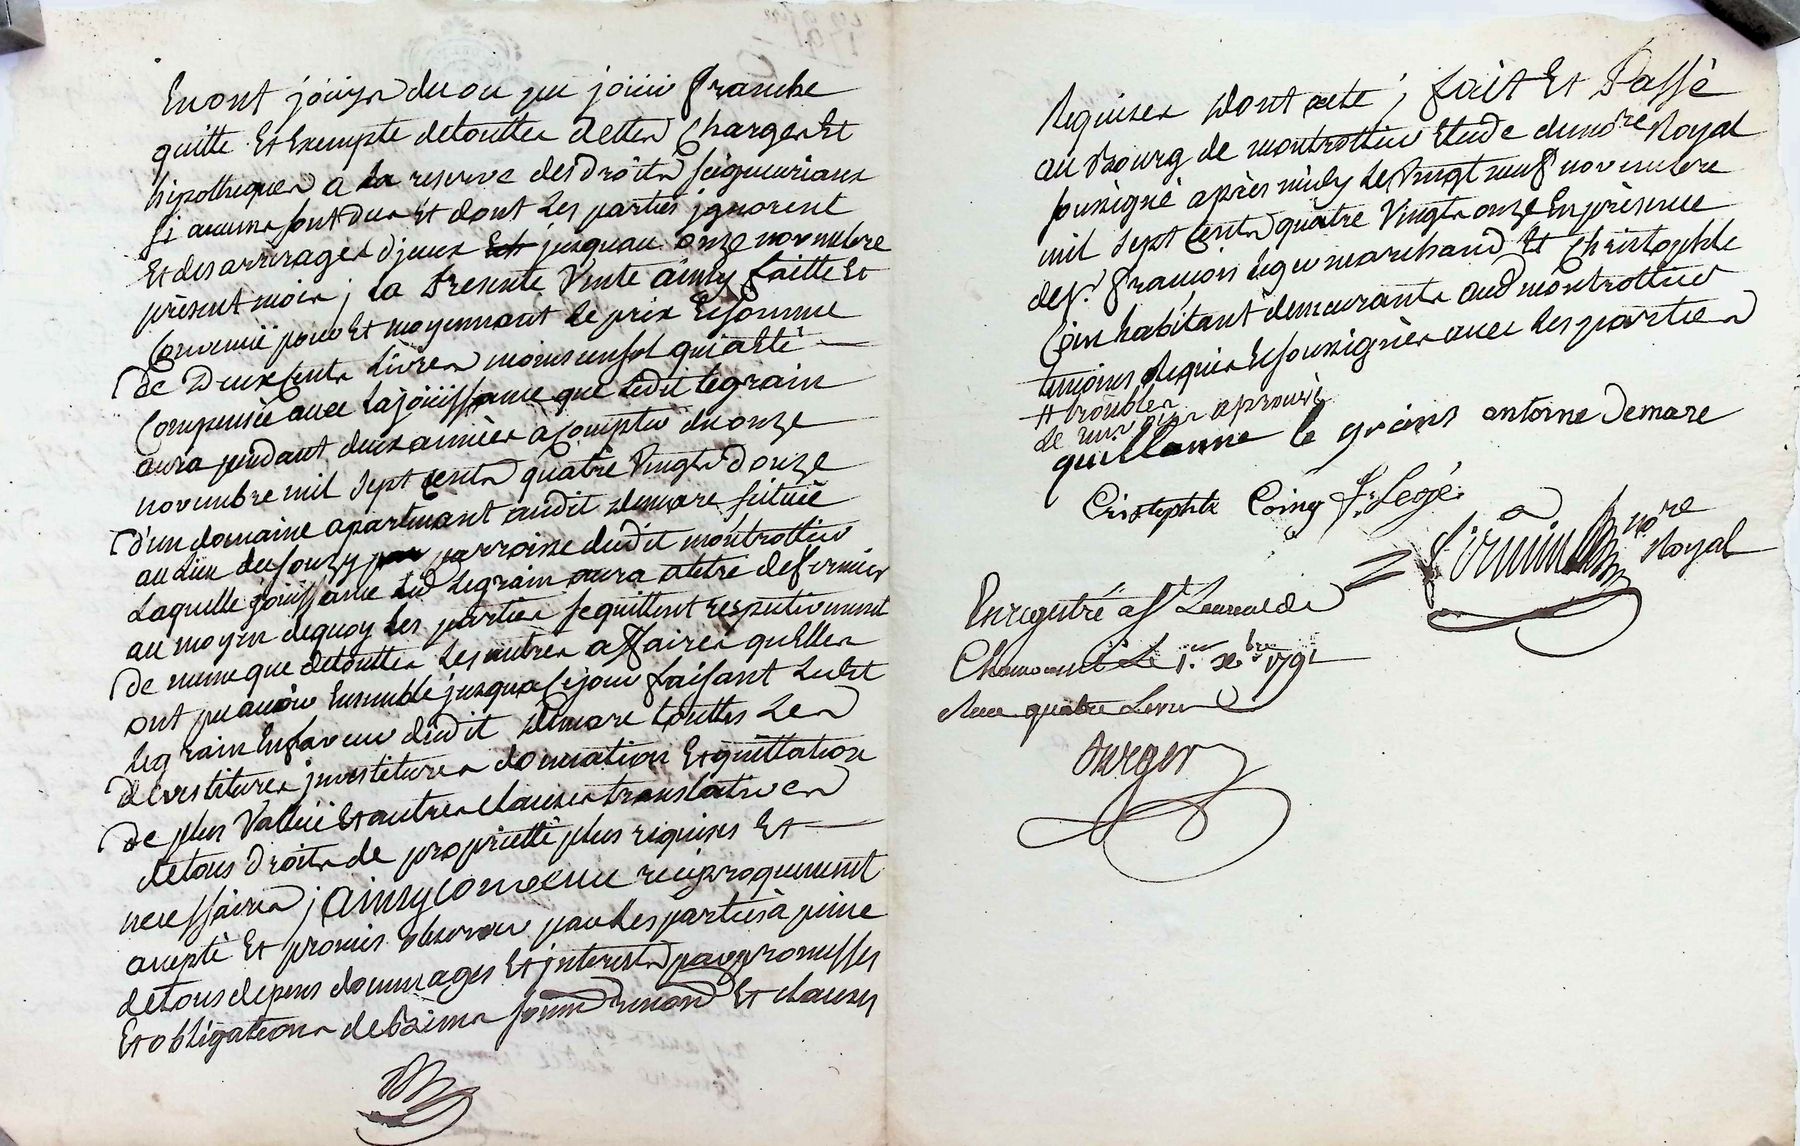 En ont jouyr du ou pu jouir franche
quitte Et Exempte de touttes dettes Charges Et
hipotheques a la reserve des droits seigneuriaux
si aucuns sont dus Et dont les parties ignorent
Et des arrerages d'jceux jusqu'au onze novembre
présent mois ; la presente Vente ainsy faitte Et
Convenüe pour Et moyennant le prix Et somme
de Deux Cents Livres moins un sol qui a Eté
Compensée avec la joüissance que ledit legrain
aura pendant deux années a Compter du onze
novembre mil sept cents quatre Vingts Douze
d'un domaine apartenant audit demare situéé
au Lieu du souzy parroisse dudit montrottier
Laquelle joüissance led legrain aura a titre de fermier
au moyen de quoy les parties se quittent respectivement
de meme que de touttes les autres affaires qu'Elles
ont pu avoir Ensemble jusqu'a ce jour faisant Ledit
legrain En faveur dudit demare touttes Les
devestitures jnvestitures donnation Et quittation
de plus Vallüe Et autres clauses translatives
de tous droits de propriette plus requises Et
necessaires ; ainsy convenu reciproquement
accepté Et promis observer par les parties à peine
de tous depens dommages Et jnterests par promesses
Et obligations de biens soum renond Et clauses
Requises Dont acte ; fait Et Passé
au Bourg de montrottier Etude du nore Royal
soussigné après midy le Vingt neuf novembre
mil sept Cents quatre Vingts onze En présence
de sr. francois leger marchand Et Christophle
Coin habitant demeurants aud montrottier
temoins requis Et soussignés avec les parties
# troubles
de renvoi aprouvé
guillaume le grains antoine Demare
Cristophle Coing f. Legé
nore Royal
Enregistré a St Laurent de
Chamousset Le 1er. xbre 1791
Recu quatre Livres